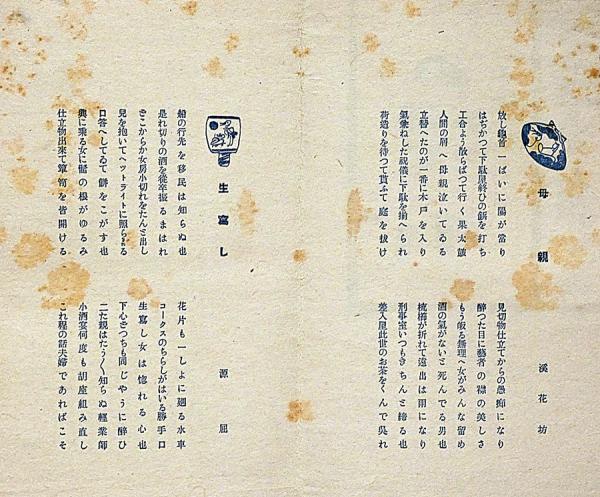 母親
溪花坊
放し飼首一ぱいに陽が當り
はぢかつて下駄屋終ひの餅を打ち
工合よう散らばつて行く果太皷
人間の屑へ母親泣いてゐる
立替へたのが一番に木戸を入り
氣兼ねした祝儀に下駄を揃へられ
荷造りを待つて貰ふて庭を抜け
見切物仕立てからの愚痴になり
醉つた目に藝者の襟の美しさ
もう皈る無理へ女がみんな留め
酒の氣がないと死んでる男也
梳櫛が折れて遠出は雨になり
刑事室いつもきちんと締る也
差入屋此世のお茶をくんで呉れ
生寫し
源屈
船の行先を移民は知らぬ也
是れ切りの酒を從卒振るまはれ
どこからか女房小切れをたんと出し
兒を抱いてヘツトライトに照らされる
口答へしてゐて餅をこがす也
輿に乘る女に髷の根がゆるみ
仕立物出來て箪笥を皆開ける
花片も一しよに廻る水車
コークスのちらしがはいる勝手口
生寫し女は惚れる心也
下心どつちも同じやうに醉ひ
二た親はたうとう知らぬ輕業師
小酒宴何度も胡座組み直し
これ程の話夫婦であればこそ